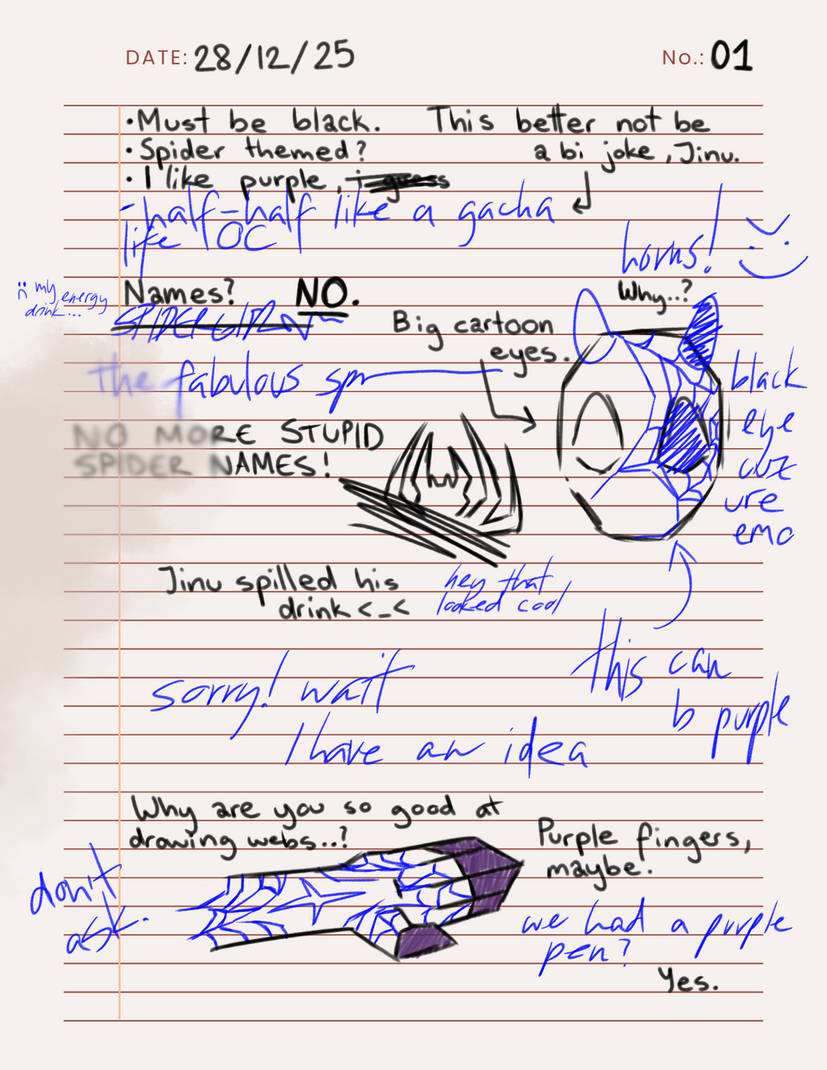 DATE: 28/12/25
No.: 01
•Must be black.
•Spider themed?
•I like purple, i guess
This better not be
a bi joke, Jinu.
-half-half like a gacha
life OC
horns! :)
Why..?
:( my energy
drink...
Names?
NO.
SPIDERGIRL
Big cartoon
eyes.
the fabulous sp
black
eye
cuz
ure
emo
NO MORE STUPID
SPIDER NAMES!
Jinu spilled his
drink <_<
hey that
looked cool
this can
b purple
sorry! wait
I have an idea
Why are you so good at
drawing webs..?
don't
ask.
Purple fingers,
maybe.
we had a purple
pen?
Yes.